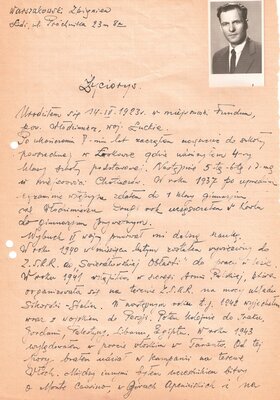 Warszakowski Zbigniew
Łódź, ul. Próchnika 23 m 82
Życiorys
Urodziłem się 14-IV-1923r. w miejscowości Fundum,
pow. Włodzimierz, woj. Łuckie.
Po ukończeniu 7-miu lat zacząłem uczęszczać do szkoły
powszechnej w gdzie ukończyłem 4-ry
klasy szkoły podstawowej. Następnie 5-tą, 6-tą i 7-mą
w miejscowości. Od roku 1937 po
egzaminie zdałem do klasy gimnazjum
we Włodzimierzu. rok uczęszczałem w
do gimnazjum
Wybuch II wojny przerwał mi dalszą naukę.
W roku 1940 w miesiącu lutym zostałem wywieziony do
Z.S.R.R. w Swierdłowskiej Obłasti do pracy w lesie.
W roku 1941 wstąpiłem w szeregi Armii Polskiej, która
organizowała się na terenie Z.S.R.R. na mocy układu
Sikorski-Stalin. W następnym roku t.j. 1942 wyjechałem
wraz z wojskiem do Persji. Potem kolejno do Iraku,
Jordanii, Palestyny, Libanu, Egiptu. W roku 1943
wylądowałem w porcie włoskim w Taranto. Od tej
pory brałem udział w kampanii na terenie
Włoch. Między innymi byłem uczestnikiem bitwy
o Monte Cassino, w Górach Apenińskich i na